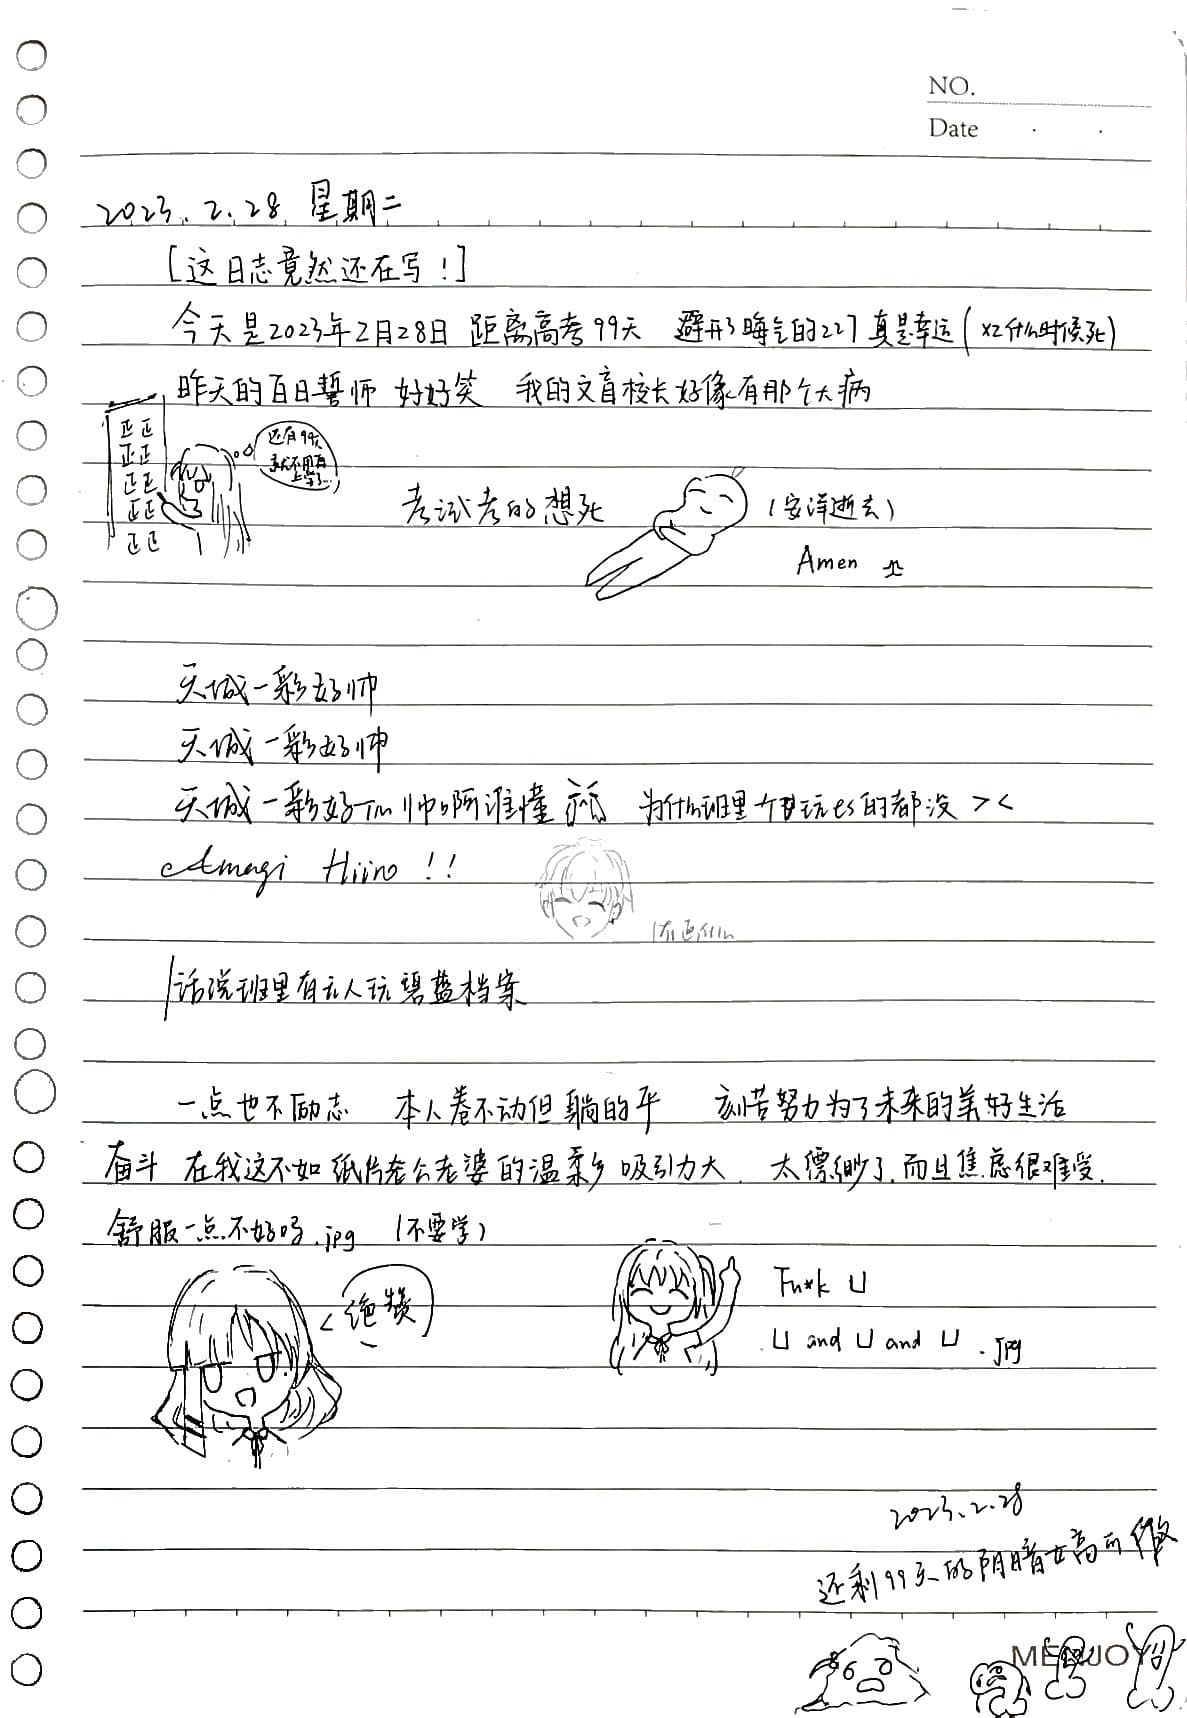 NO.
Date
2023.2.28 星期二
[这日志竟然还在写!]
今天是2023年2月28日 距离高考99天 避开了晦气的227真是幸运(xz什么时候死)
昨天的百日誓师 好好笑 我的文盲校长好像有那个大病
正正
正正
正正
正正
正正
还有99天
就不用再
上学了...
考试考的想死
(安详逝去)
Amen
天城一彩好帅
天城一彩好帅
天城一彩好Tm帅啊谁懂 为什么班里 玩es的都没 ><
Amagi Hiiro!!
话说班里有无人玩碧蓝档案
一点也不励志 本人卷不动但躺的平 刻苦努力为了未来的美好生活
奋斗 在我这不如纸片老公老婆的温柔乡吸引力大. 太缥缈了.而且焦虑很难受.
舒服一点不好吗.jpg (不要学)
绝赞
Fu*k U
U and U and U .jpg
2023.2.28
还剩99天的阴暗女高所做
MENJOY